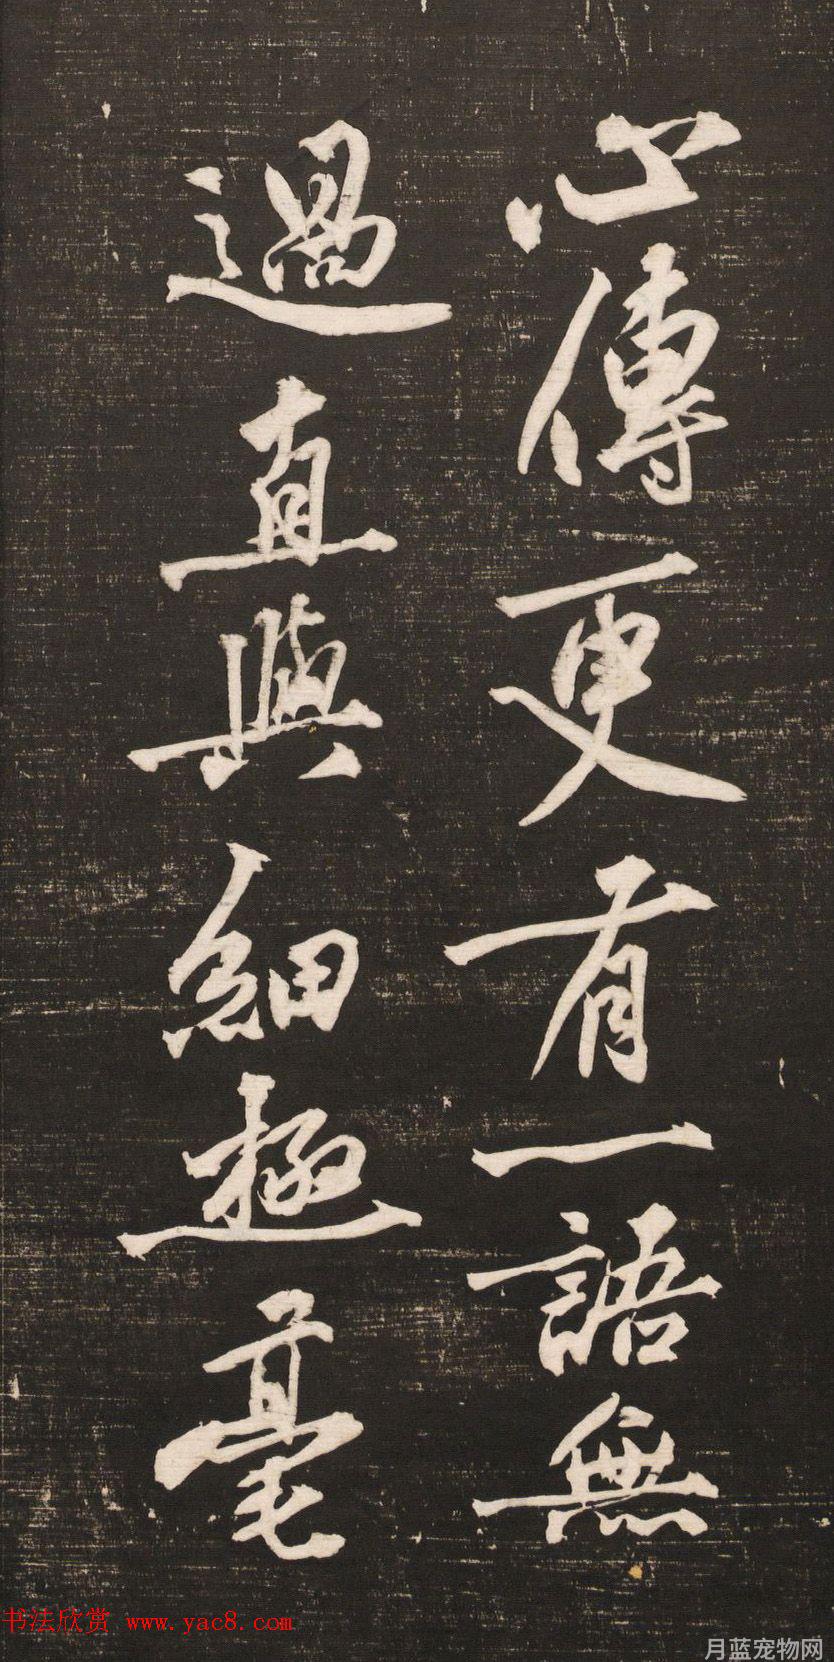 心傳更有一語無
過直與細極毫
书法欣赏 www.yac8.com
月蓝宠物网